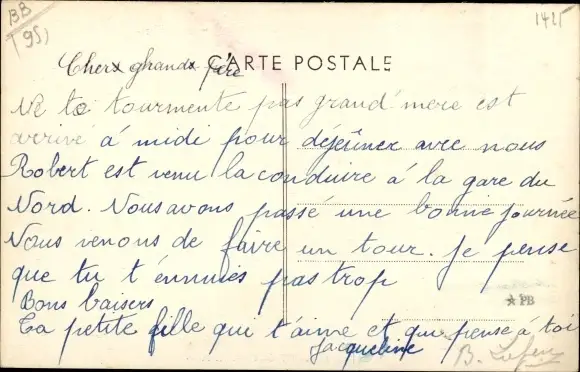 BB
95)
1425
CARTE POSTALE
Cherx ghrandx père
Ne te tourmente pas grand'mère est
arrivé á midi pour déjeûner avec nous
Robert est venu la conduire á la gare du
Nord. Nous avons passé une bonne journée
Nous venons de faire un tour. Je pense
que tu t'énnuies pas trop
Bons baisers
Ta petite fille qui t'aime et que pense á toi
Jacqueline
PB
B.